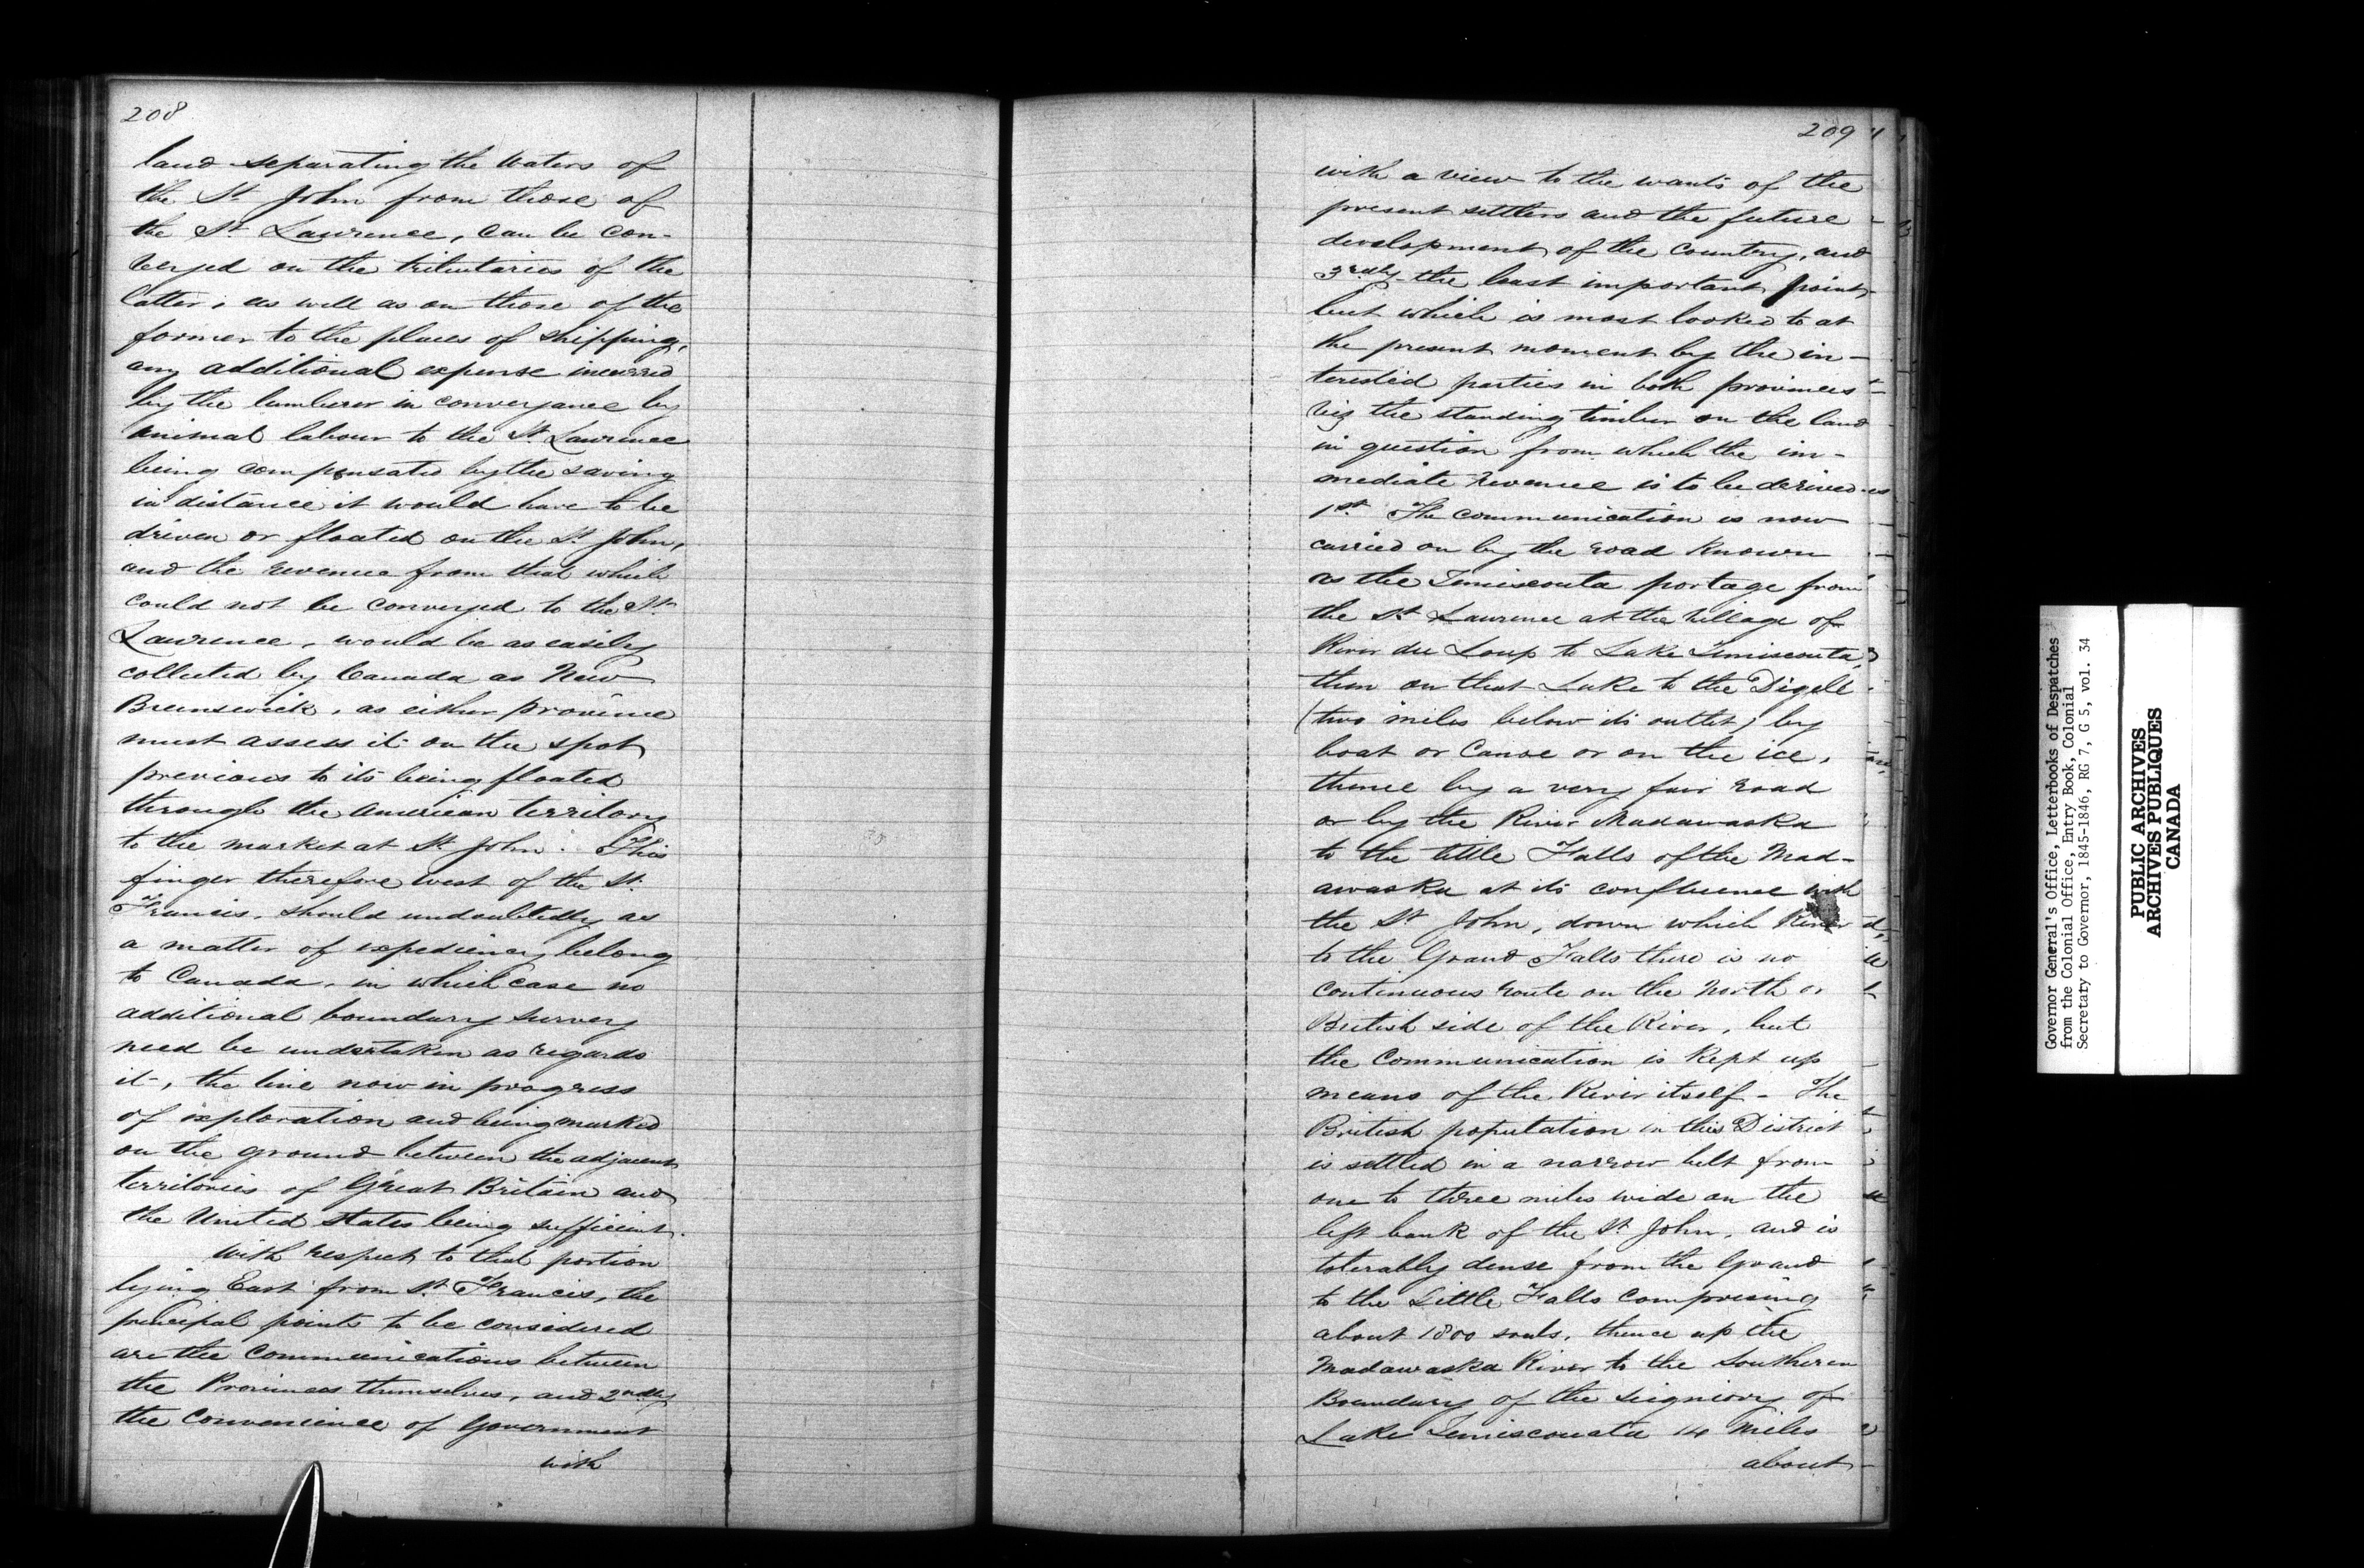 208
land separating the Waters of
the St John from those of
the St Lawrence, can be con-
veyed on the tributaries of the
latter, as well as on those of the
former to the places of shipping,
any additional expense incurred
by the lumberer in conveyance by
animal labour to the St Lawrence
being compensated by the saving
in distance it would have to be
driven or floated on the St John,
and the revenue from that which
could not be conveyed to the St
Lawrence, would be as easily
collected by Canada as New
Brunswick, as either province
must assess it on the spot
previous to its being floated
through the American territory
to the market at St John. This
finger therefore west of the St
Francis, should undoubtedly as
a matter of expediency belong
to Canada, in which case no
additional boundary survey
need be undertaken as regards
it, the line now in progress
of exploration and being marked
on the ground between the adjacent
territories of Great Britain and
the United States being sufficient.
With respect to that portion
lying East from St Francis, the
principal points to be considered
are the Communications between
the Provinces themselves, and 2ndly
the Convenience of Government
with
209
with a view to the wants of the
present settlers and the future
development of the Country, and
3rdly the least important point,
but which is most looked to at
the present moment by the in-
terested parties in both provinces
viz the standing timber on the land
in question from which the im-
mediate revenue is to be derived
1st The communication is now
carried on by the road known
as the Temiscouta portage from
the St Lawrence at the Village of
River du Loup to Lake Temiscouta,
then on that Lake to the Digele
(two miles below its outlet) by
boat or Canoe or on the ice,
thence by a very fair road
or by the River Madawaska
to the little Falls of the Mad-
awaska at its confluence with
the St John, down which River
to the Grand Falls there is no
continuous route on the North or
British side of the River, but
the Communication is kept up
means of the River itself - The
British population in this District
is settled in a narrow belt from
one to three miles wide on the
left bank of the St John, and is
tolerably dense from the Grand
to the Little Falls comprising
about 1800 souls, thence up the
Madawaska River to the Southern
Boundary of the seigniory of
Lake Temiscouata 14 Miles
about
Governor General's Office, Letterbooks of Despatches
from the Colonial Office, Entry Book, Colonial
Secretary to Governor, 1845-1846, RG 7, G 5, vol. 34
PUBLIC ARCHIVES
ARCHIVES PUBLIQUES
CANADA